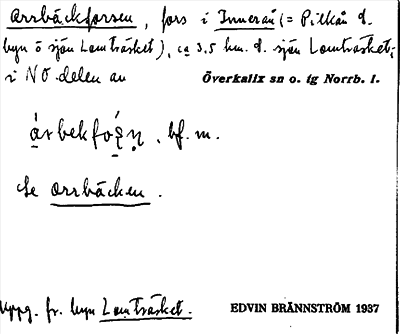 Orrbäckforsen, fors i Innerån (= Pilkån d.
byn o sjön Lomträsket), ca 3,5 km. d. sjön Lomträsket;
i NO delen av Överkalix sn o. tg Norrb. l.
bf. m.
Se Orrbäcken.
Uppg. fr. byn Lomträsket. EDVIN BRÄNNSTRÖM 1937